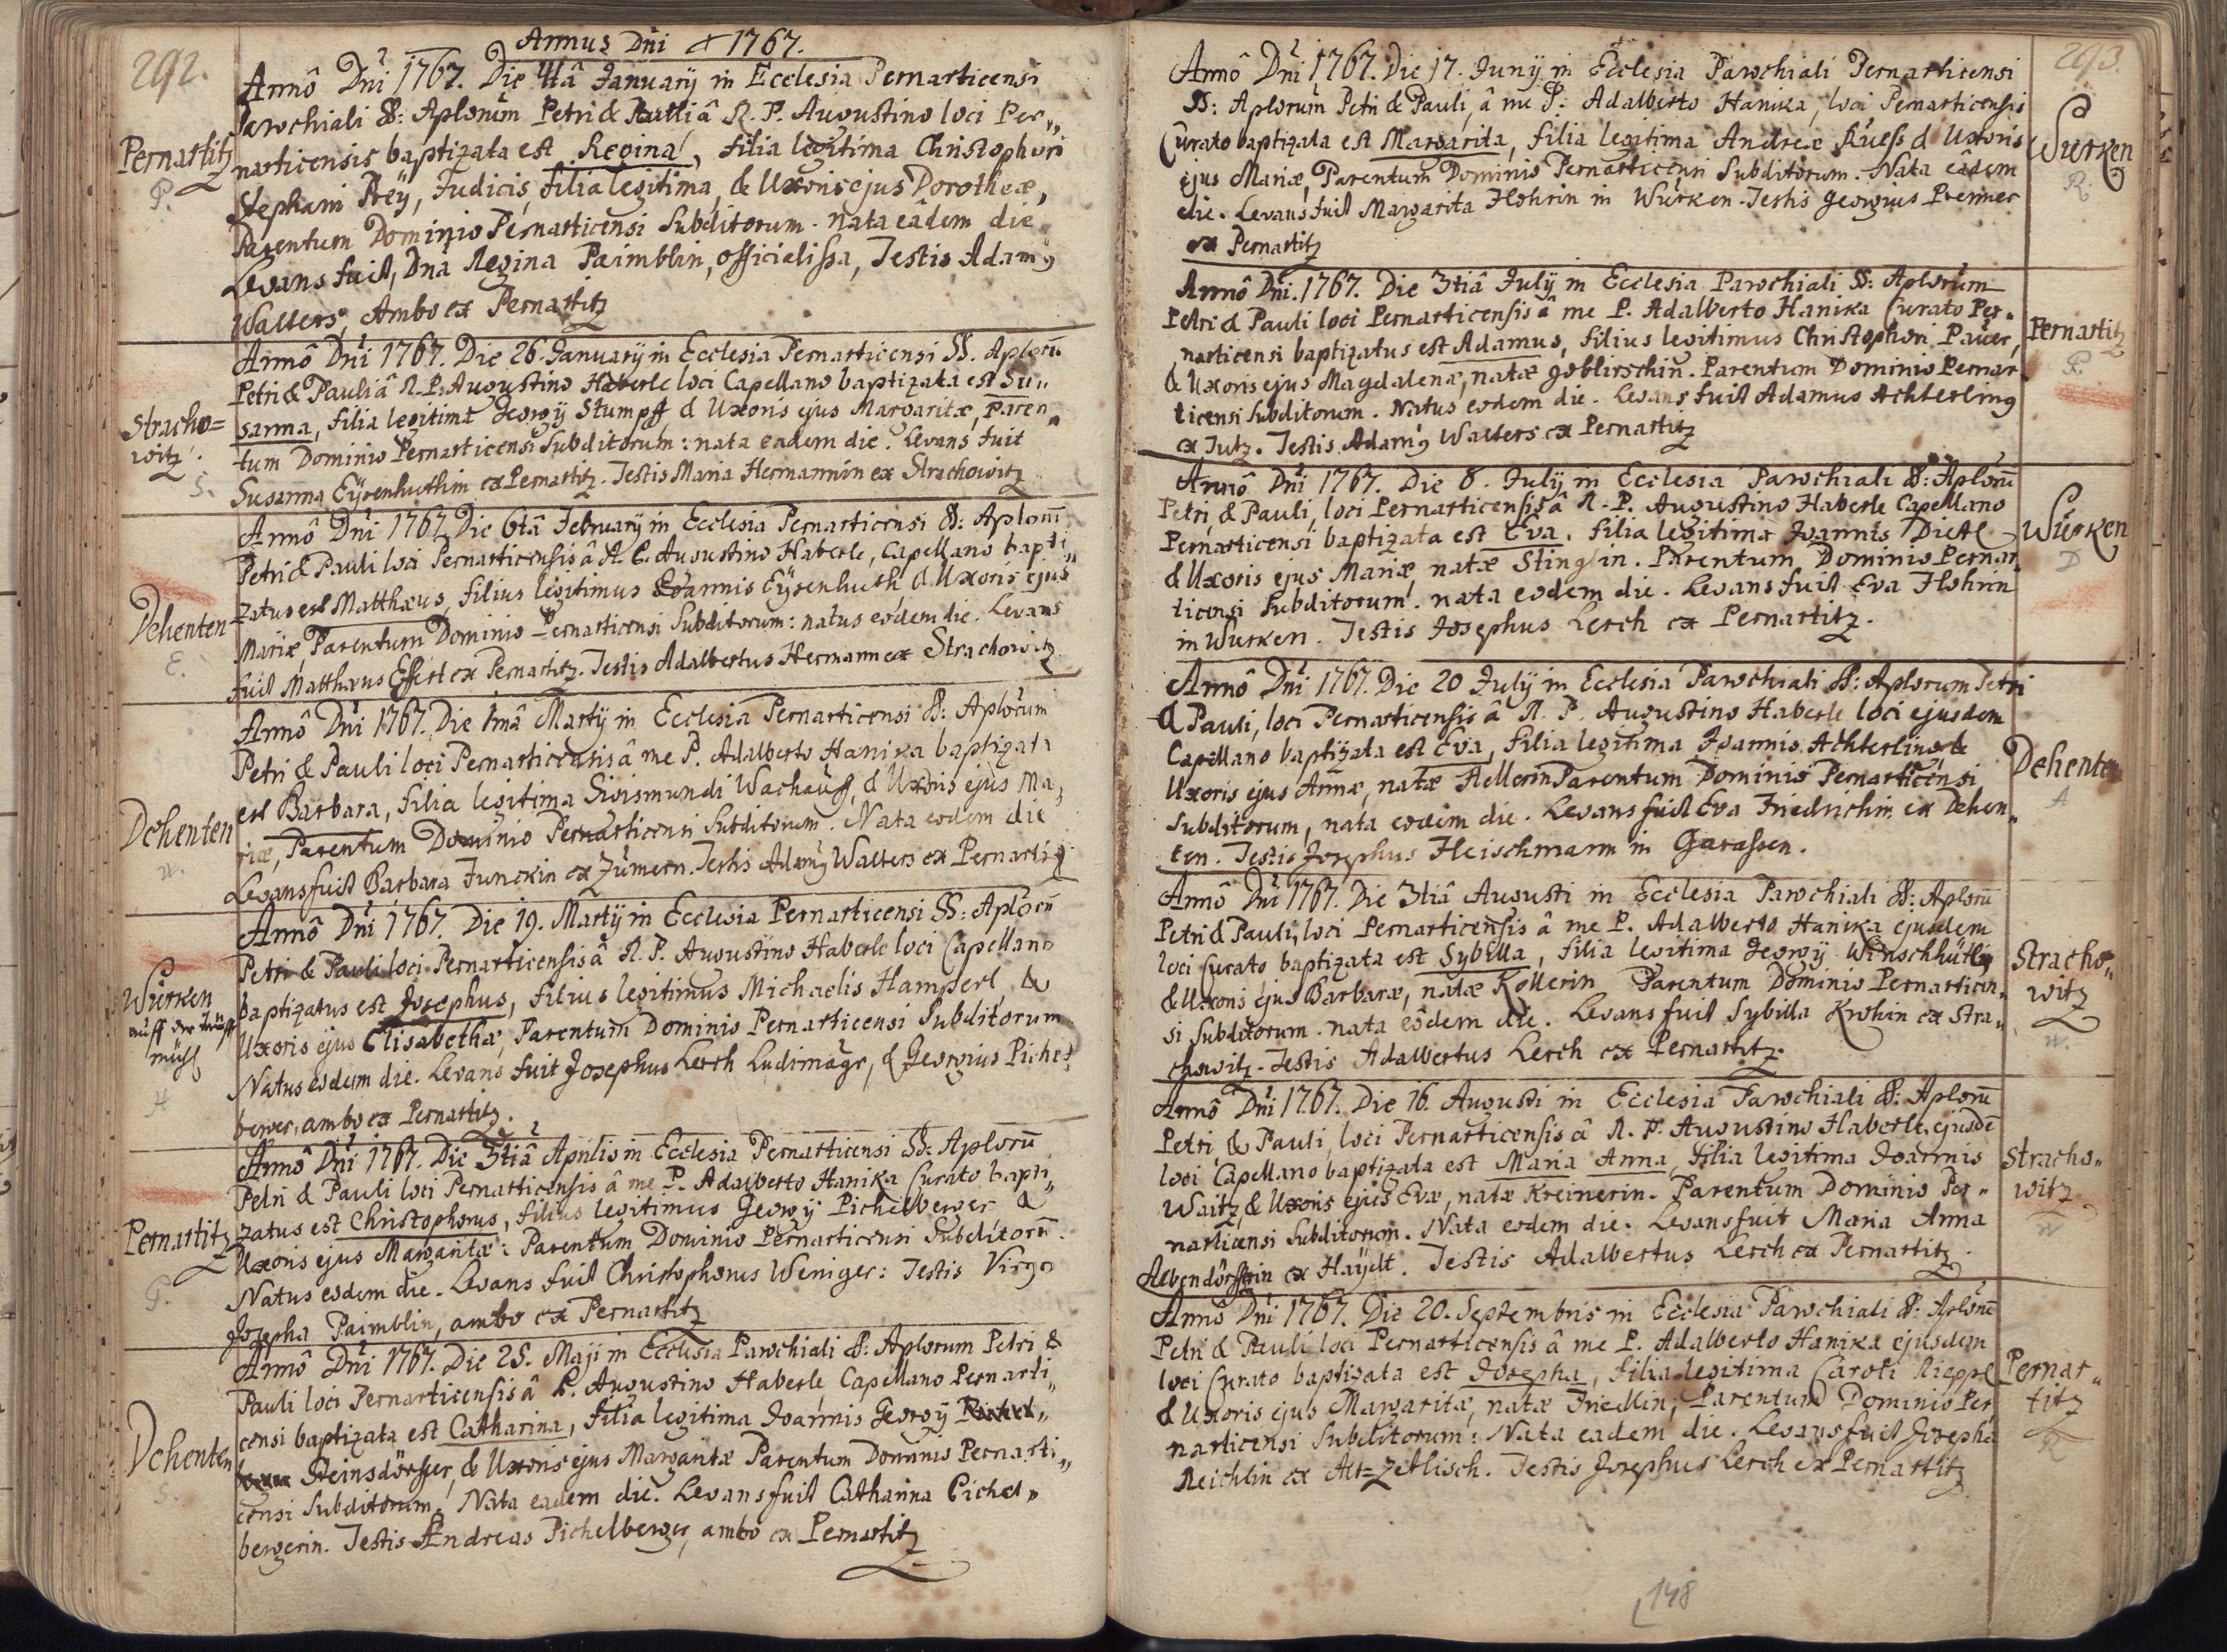 292.
Annus Dni 1767.
Pernartitz
P.
Annô Dni 1767. Die 4tâ Januarÿ in Ecclesia Pernarticensi
Parochiali SS: Aplorum Petri & Pauli â R. P. Augustino loci Per„
narticensis baptizata est Regina, filia legitima Christophori
Stephani Preÿ, Judicis, filia legitima, & Uxoris ejus Dorotheæ,
Parentum Dominio Pernarticensi Subditorum. nata eâdem die
Levans fuit, Dna Regina Paimblin, officialissa, Testis Adamg
Walters, Ambo ex Pernartitz
Stracho=
witz.
S.
Annô Dni 1767. Die 26. Januarÿ in Ecclesia Pernarticensi SS. Aplorū
Petri & Pauli â R. P. Augustino Haberle loci Capellano baptizata est Su„
sanna, filia legitima Georgÿ Stumpff & Uxoris ejus Margaritæ, Paren„
tum Dominio Pernarticensi Subditorum: nata eadem die. Levans fuit
Susanna Eÿsenhuthin ex Pernartitz. Testis Maria Hermannin ex Strachowitz
Dehenten
E.
Annô Dni 1767. Die 6tâ Februarÿ in Ecclesia Pernarticensi SS: Aplorū
Petri & Pauli loci Pernarticensis â R. P. Augustino Haberle, Capellano bapti„
zatus est Matthæus, filius legitimus Joannis Eÿsenhuth & Uxoris ejus
Mariæ, Parentum Dominio Pernarticensi Subditorum: natus eodem die. Levans
fuit Matthæus Essert ex Pernartitz. Testis Adalbertus Hermann ex Strachowitz
Dehenten
W.
Annô Dni 1767. Die 1mâ Martÿ in Ecclesia Pernarticensi SS: Aplorum
Petri & Pauli loci Pernarticensis â me P. Adalberto Hanika baptizata
est Barbara, filia legitima Sigismundi Wachauff, & Uxoris ejus Ma„
riæ, Parentum Dominio Pernarticensi Subditorum. Nata eodem die
Levans fuit Barbara Junckin ex Zumern. Testis Adamg Walters ex Pernartitz
Wurken
H
Annô Dni 1767. Die 19. Martÿ in Ecclesia Pernarticensi SS: Aplorū
Petri & Pauli loci Pernarticensis â R. P. Augustino Haberle loci Capellano
baptizatus est Josephus, filius legitimus Michaelis Hamperl &
Uxoris ejus Elisabethæ, Parentum Dominio Pernarticensi Subditorum
Natus eodem die. Levans fuit Josephus Lerch Ludimagr, & Georgius Pichel
berger, ambo ex Pernartitz.
Pernartitz
P.
Annô Dni 1767. Die 3tiâ Aprilis in Ecclesia Pernarticensi SS: Aplorū
Petri & Pauli loci Pernarticensis â me P. Adalberto Hanika Curato bapti„
zatus est Christophorus, filius legitimus Georgÿ Pichelberger &
Uxoris ejus Margaritæ: Parentum Dominio Pernarticensi Subditorū.
Natus eodem die. Levans fuit Christophorus Weniger: Testis Virgo
Josepha Paimblin, ambo ex Pernartitz
Dehenten
S.
Annô Dni 1767. Die 25. Maji in Ecclesia Parochiali SS: Aplorum Petri &
Pauli loci Pernarticensis â P. Augustino Haberle Capellano Pernarti„
censi baptizata est Catharina, filia legitima Joannis Georgÿ Pichel„
Steinsdörffer, & Uxoris ejus Margaritæ Parentum Dominio Pernarti„
censi Subditorum. Nata eadem die. Levans fuit Catharina Pichel„
bergerin. Testis Andreas Pichelberger, ambo ex Pernartitz
293.
Annô Dni 1767. Die 17. Junÿ in Ecclesia Parochiali Pernarticensi
SS: Aplorum Petri & Pauli, â me P. Adalberto Hanika, loci Pernarticensis
Curato baptizata est Margarita, filia legitima Andreæ Ruess & Uxoris
ejus Mariæ, Parentum Dominio Pernarticensi Subditorum. Nata eâdem
die. Levans fuit Margarita Flohrin in Wurken. Testis Georgius Prenner
ex Pernartitz
Wurken
R.
Annô Dni. 1767. Die 3tiâ Julÿ in Ecclesia Parochiali SS: Aplorum
Petri & Pauli loci Pernarticensis â me P. Adalberto Hanika Curato Per„
narticensi baptizatus est Adamus, filius legitimus Christophori Pauer,
& Uxoris ejus Magdalenæ, natæ Goblirschin. Parentum Dominio Pernar„
ticensi Subditorum. Natus eodem die. Levans fuit Adamus Achterling
ex Jutz. Testis Adamg Walters ex Pernartitz
Pernartitz
P.
Annô Dni 1767. Die 8. Julÿ in Ecclesia Parochiali SS: Aplorū
Petri & Pauli, loci Pernarticensis â R. P. Augustino Haberle Capellano
Pernarticensi baptizata est Eva. filia legitima Joannis Dietl
& Uxoris ejus Mariæ, natæ Stinglin. Parentum Dominio Pernar„
ticensi Subditorum. nata eodem die. Levans fuit Eva Flohrin
in Wurken. Testis Josephus Lerch ex Pernartitz.
Wurken
D
Annô Dni 1767. Die 20 Julÿ in Ecclesia Parochiali SS: Aplorum Petri
& Pauli, loci Pernarticensis â R. P. Augustino Haberle loci ejusdem
Capellano baptizata est Eva, filia legitima Joannis Achterling &
Uxoris ejus Annæ, natæ Hellerin Parentum Dominio Pernarticensi
Subditorum, nata eodem die. Levans fuit Eva Friedrichin ex Dehen„
ten. Testis Josephus Fleischmann in Garassen.
Dehenten
A
Annô Dni 1767. Die 3tiâ Augusti in Ecclesia Parochiali SS: Aplorū
Petri & Pauli, loci Pernarticensis â me P. Adalberto Hanika ejusdem
loci Curato baptizata est Sybilla, filia legitima Georgÿ Winschhüttig
& Uxoris ejus Barbaræ, natæ Kollerin Parentum Dominio Pernarticen„
si Subditorum. nata eôdem die. Levans fuit Sybilla Krohin ex Stra„
chowitz. Testis Adalbertus Lerch ex Pernartitz.
Stracho„
witz
W.
Annô Dni 1767. Die 16. Augusti in Ecclesia Parochiali SS: Aplorū
Petri & Pauli, loci Pernarticensis â R. P. Augustino Haberle, ejusdē
loci Capellano baptizata est Maria Anna, filia legitima Joannis
Waitz, & Uxoris ejus Evæ, natæ Kreinerin. Parentum Dominio Per„
narticensi Subditorum. Nata eodem die. Levans fuit Maria Anna
Albendörfferin ex Haÿdt. Testis Adalbertus Lerch ex Pernartitz.
Stracho„
witz
W
Annô Dni 1767. Die 20. Septembris in Ecclesia Parochiali SS: Aplorū
Petri & Pauli loci Pernarticensis â me P. Adalberto Hanika ejusdem
loci Curato baptizata est Josepha, filia legitima Caroli Rieppl
& Uxoris ejus Margaritæ, natæ Friedlin; Parentum Dominio Per
narticensi Subditorum: Nata eadem die. Levans fuit Josepha
Reichlin ex Alt=Zetlisch. Testis Josephus Lerch ex Pernartitz
Pernar„
titz
R
148